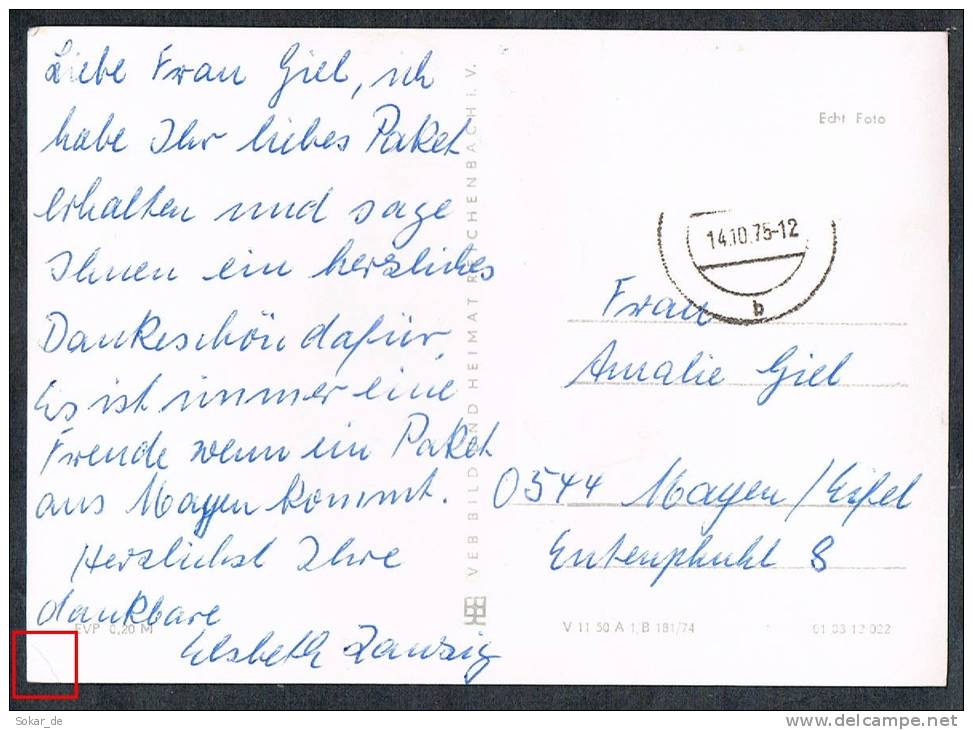 Liebe Frau Giel, ich
habe Ihr liebes Paket
erhalten und sage
Ihnen ein herzliches
Dankeschön dafür.
Es ist immer eine
Freude wenn ein Paket
aus Mayen kommt.
Herzlichst Ihre
dankbare
Elsbeth Danzig
EVP 0,20 M
VEB BILD UND HEIMAT REICHENBACH i. V.
Echt Foto
14.10.75-12
b
Frau
Amalie Giel
0544 Mayen/Eifel
Entenpfuhl 8
V 11 50 A 1/B 181/74
01 03 12 022
Sokar_de
www.delcampe.net